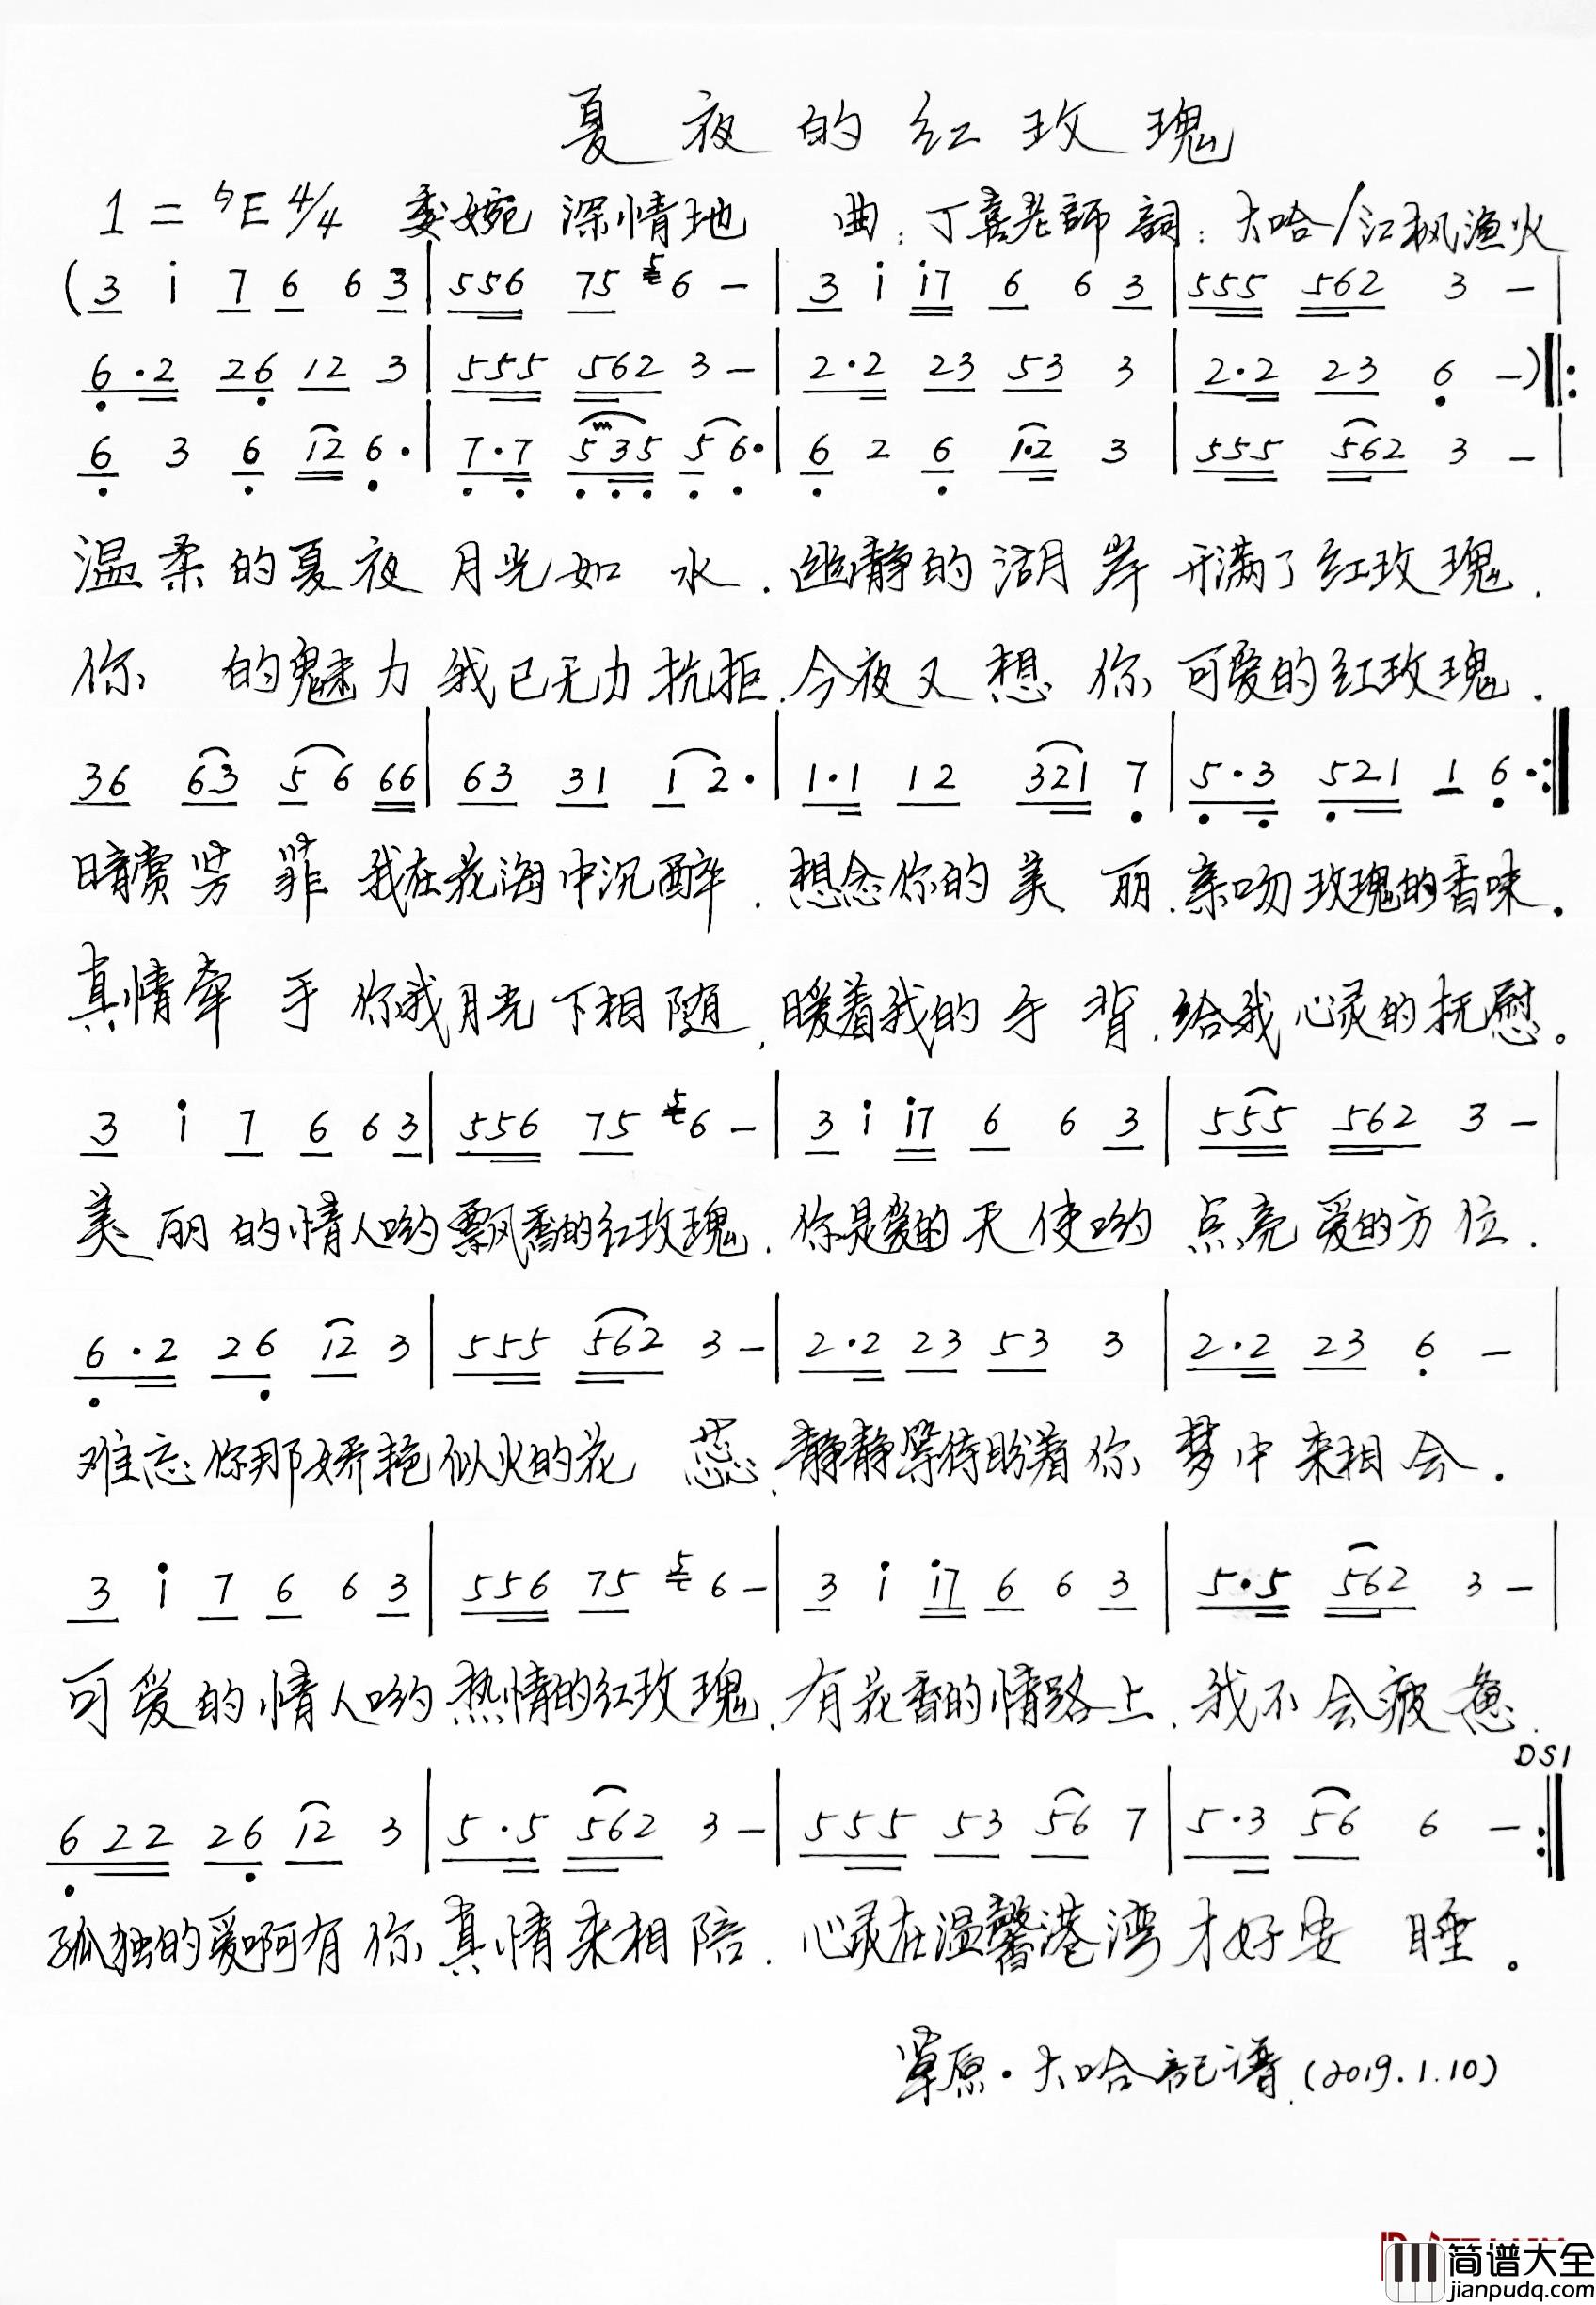 夏夜的红玫瑰
1=♭E 4/4 委婉 深情地 曲:丁喜老師 詞:大哈/江枫渔火
(3 i 7 6 6 3|556 75 5 6 -|3 i i7 6 6 3|555 562 3 -|
6·2 26 12 3|555 562 3 -|2·2 23 53 3|2·2 23 6 -)‖:
6 3 6 12 6·|7·7 535 5 6·|6 2 6 1·2 3|555 562 3 -|
温柔的夏夜 月光如 水.幽静的湖月岸 开满了红玫瑰.
你 的魅力 我已无力抗拒.今夜又想 你 可爱的红玫瑰.
36 63 5 6 66|63 31 1 2·|1·1 12 321 7|5·3 521 1 6·:‖
暗赏芳 菲 我在花海中沉醉.想念你的美 丽.亲吻玫瑰的香味.
真情牵 手 你我月光下相随.暖着我的手 背.给我心灵的抚慰。
3 i 7 6 6 3|556 75 5 6 -|3 i i7 6 6 3|555 562 3 -|
美丽的情人哟飘香的红玫瑰.你是爱的天使哟 点亮爱的方位.
6·2 26 12 3|555 562 3 -|2·2 23 53 3|2·2 23 6 -|
难忘你那娇艳似火的花 蕊.静静等待盼着你 梦中来相会.
3 i 7 6 6 3|556 75 5 6 -|3 i i7 6 6 3|5·5 562 3 -|
可爱的情人哟热情的红玫瑰.有花香的情路上.我不会疲惫.
DS1
622 26 12 3|5·5 562 3 -|555 53 56 7|5·3 56 6 -:‖
孤独的爱啊有你真情来相陪.心灵在温馨港湾才好安 睡。
草原·大哈記谱.(2019.1.10)
简谱大全
jianpudq.com